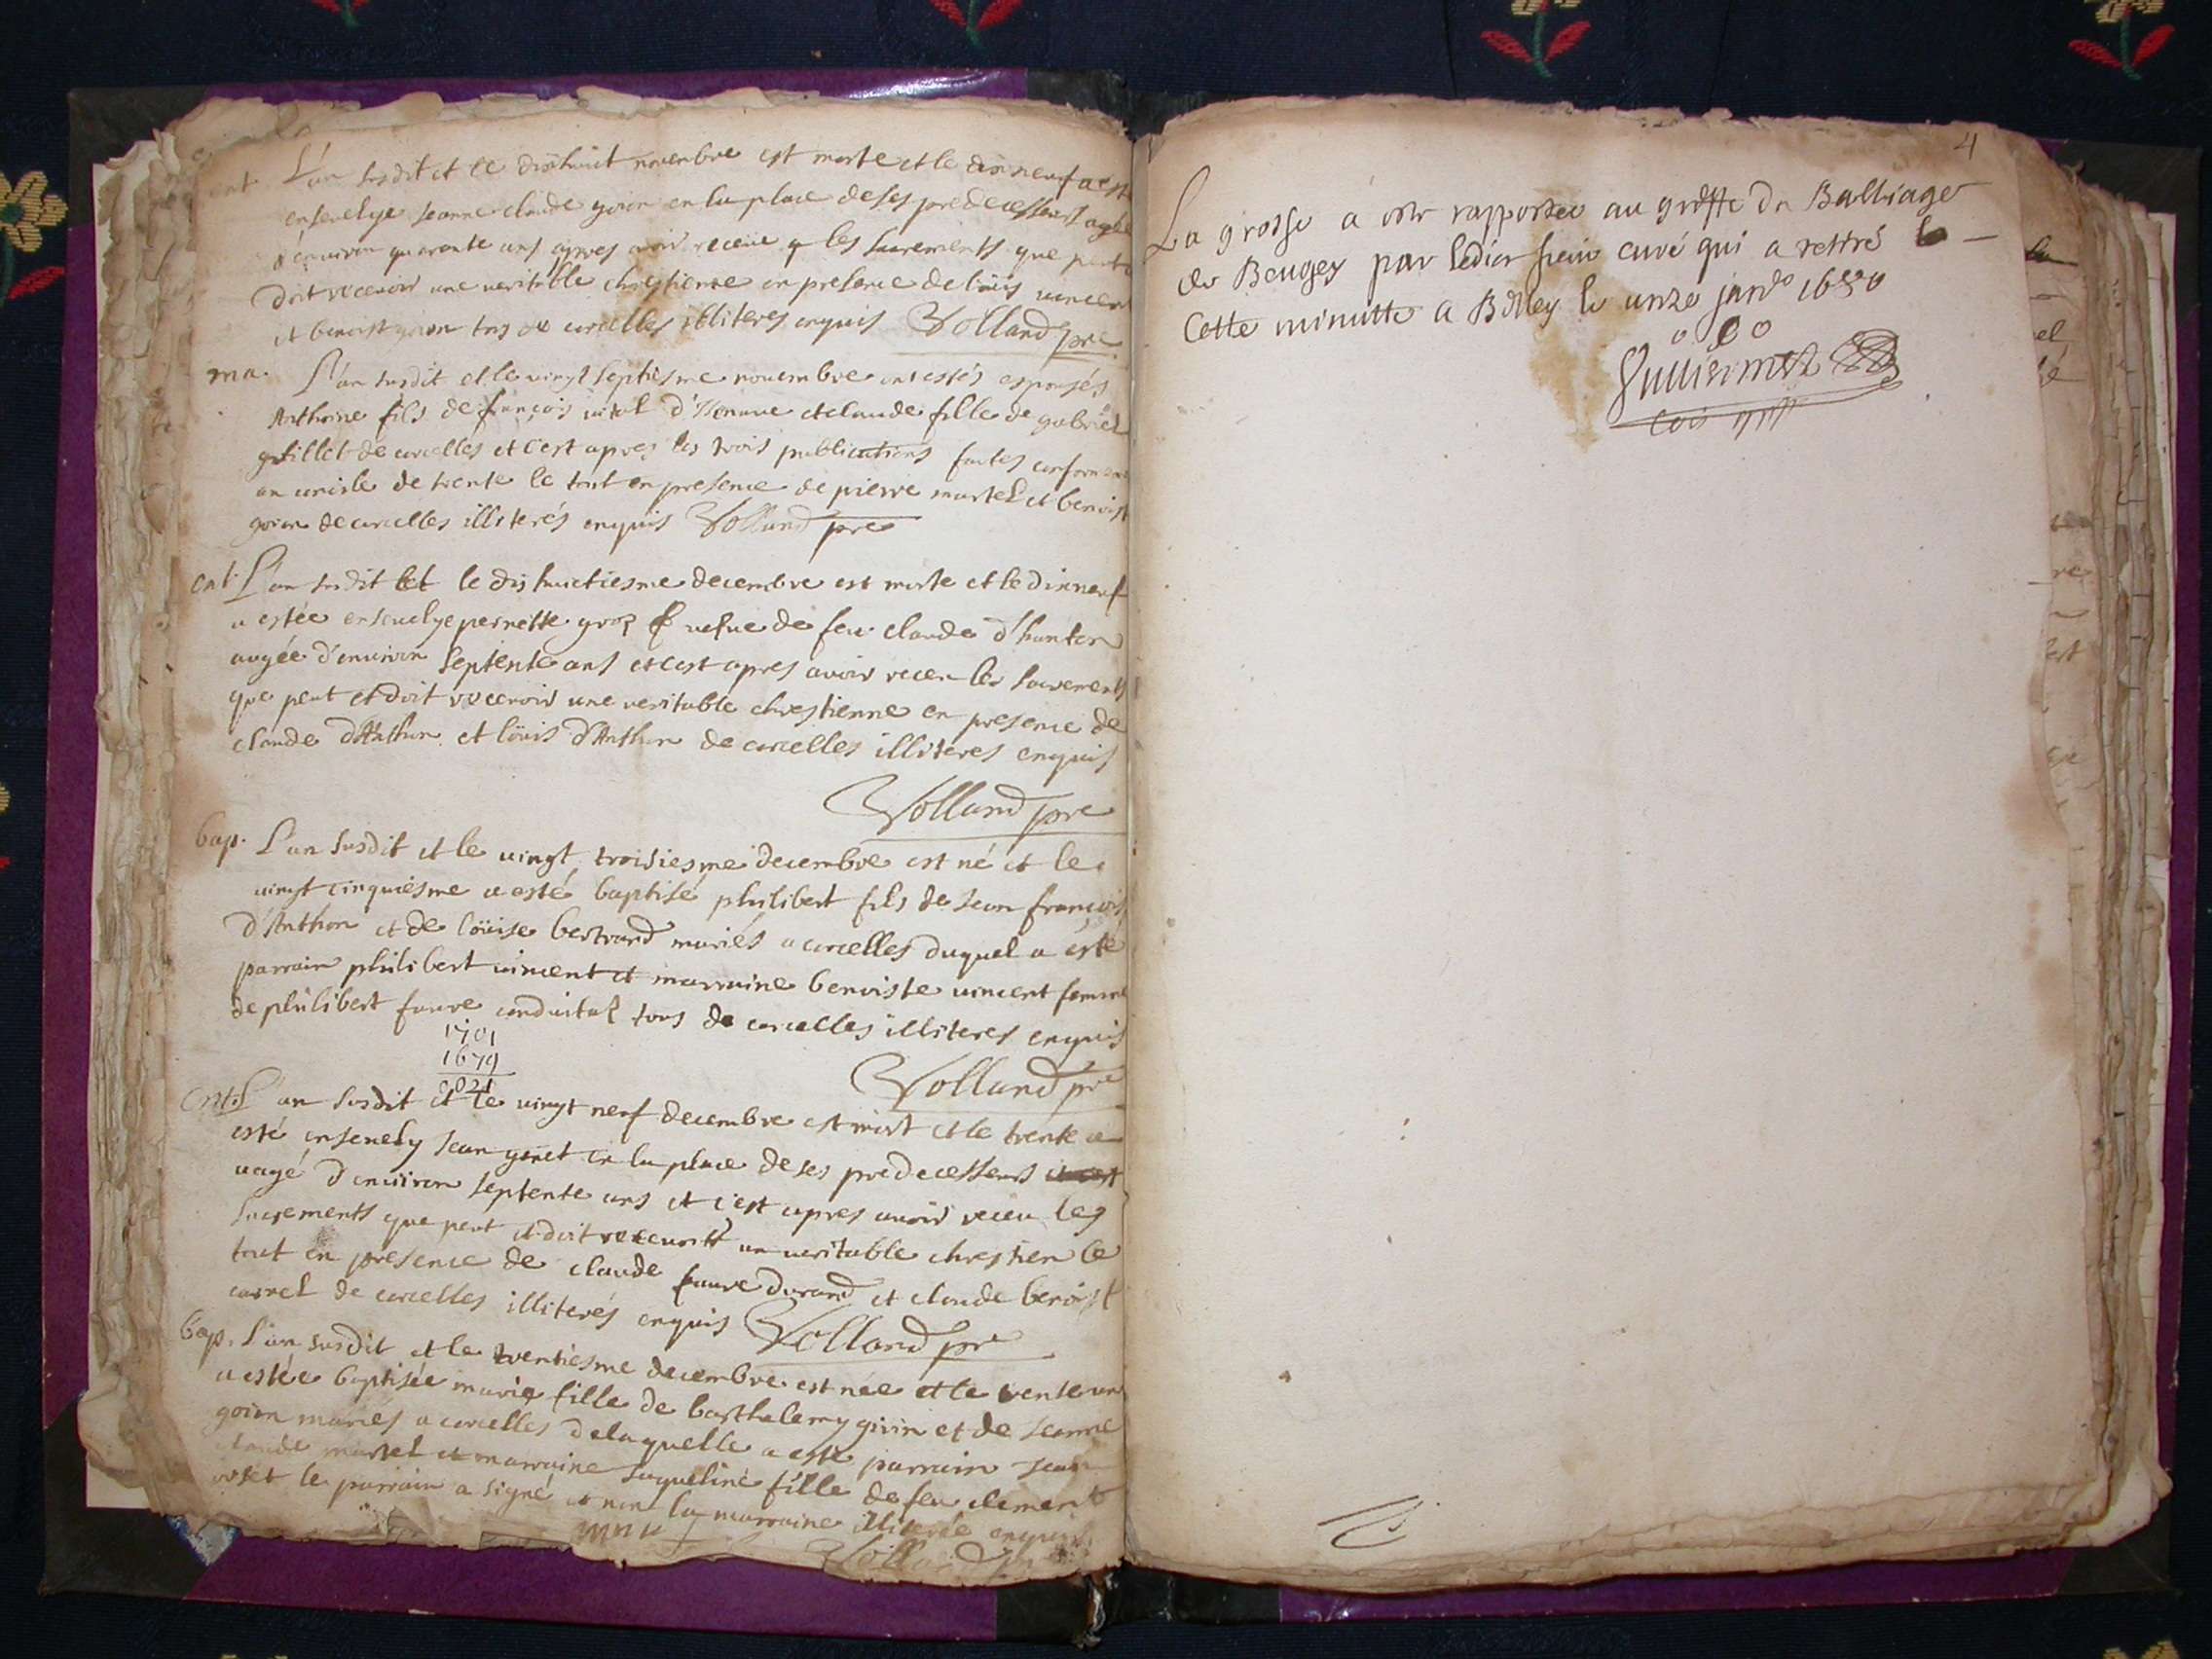 ent. L'an susdit et le dishuict novembre est morte et le dixneuf a esté
ensevelye Jeanne claude goion en la place de ses predecesseurs agée
d'environ quarente ans apres avoir receüe les sacrements que peut
doit recevoir une veritable chrestienne en presence de loüis vincent
et benoist goion tous de corcelles illiteres enquis Volland pre
ma. L'an susdit et le vingt septiesme novembre ont estés espousés
Anthoine fils de françois d'Izenave et claude fille de gabriel
de corcelles et c'est apres les trois publications faites conformem
au concile de trente le tout en presence de pierre martel et benoist
goion de corcelles illiterés enquis Volland pre
ent. L'an susdit et le dishuictiesme decembre est morte et le dixneuf
a estée ensevelye pernette vefve de feu claude d'hanton
aagée d'environ septente ans et c'est apres avoir receu les sacrements
que peut et doit recevoir une veritable chrestienne en presence de
claude d'Anthon et loüis d'Anthon de corcelles illiteres enquis
Volland pre
bap. L'an susdit et le vingt troisiesme decembre est né et le
vingt cinquiesme a esté baptisé philibert fils de Jean françois
d'Anthon et de loüise bertrand mariés a corcelles duquel a esté
parrain philibert vincent et marraine benoiste vincent femme
de philibert favre tous de corcelles illiteres enquis
1701
1679
0021
Volland pre
ent. L'an susdit et le vingt neuf decembre est mort et le trente a
esté ensevely Jean en la place de ses predecesseurs
aagé d'environ septente ans et c'est apres avoir receu les
sacrements que peut et doit recevoir un veritable chrestien le
tout en presence de claude favre durand et claude benoist
carrel de corcelles illiterés enquis Volland pre
bap. L'an susdit et le trentiesme decembre est née et le trente un
a estée baptisée marie fille de barthelemy girin et de Jeanne
goion mariés a corcelles de laquelle a esté parrain Jean
claude martel et marraine Jaqueline fille de feu clement
le parrain a signé et non la marraine illiterée enquise
Volland pre
4
La grosse a esté rapportée au greffe du Balliage
de Beugey par ledict sieur curé qui a retiré
Cette minutte a Belley le unze janv 1680